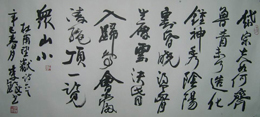 岱宗夫如何齊
魯青未了造化
鍾神秀陰陽
割昏曉盪胸
生層雲決眥
入歸鳥會當
凌絕頂一覽
眾山小
杜甫望嶽詩
辛巳春月